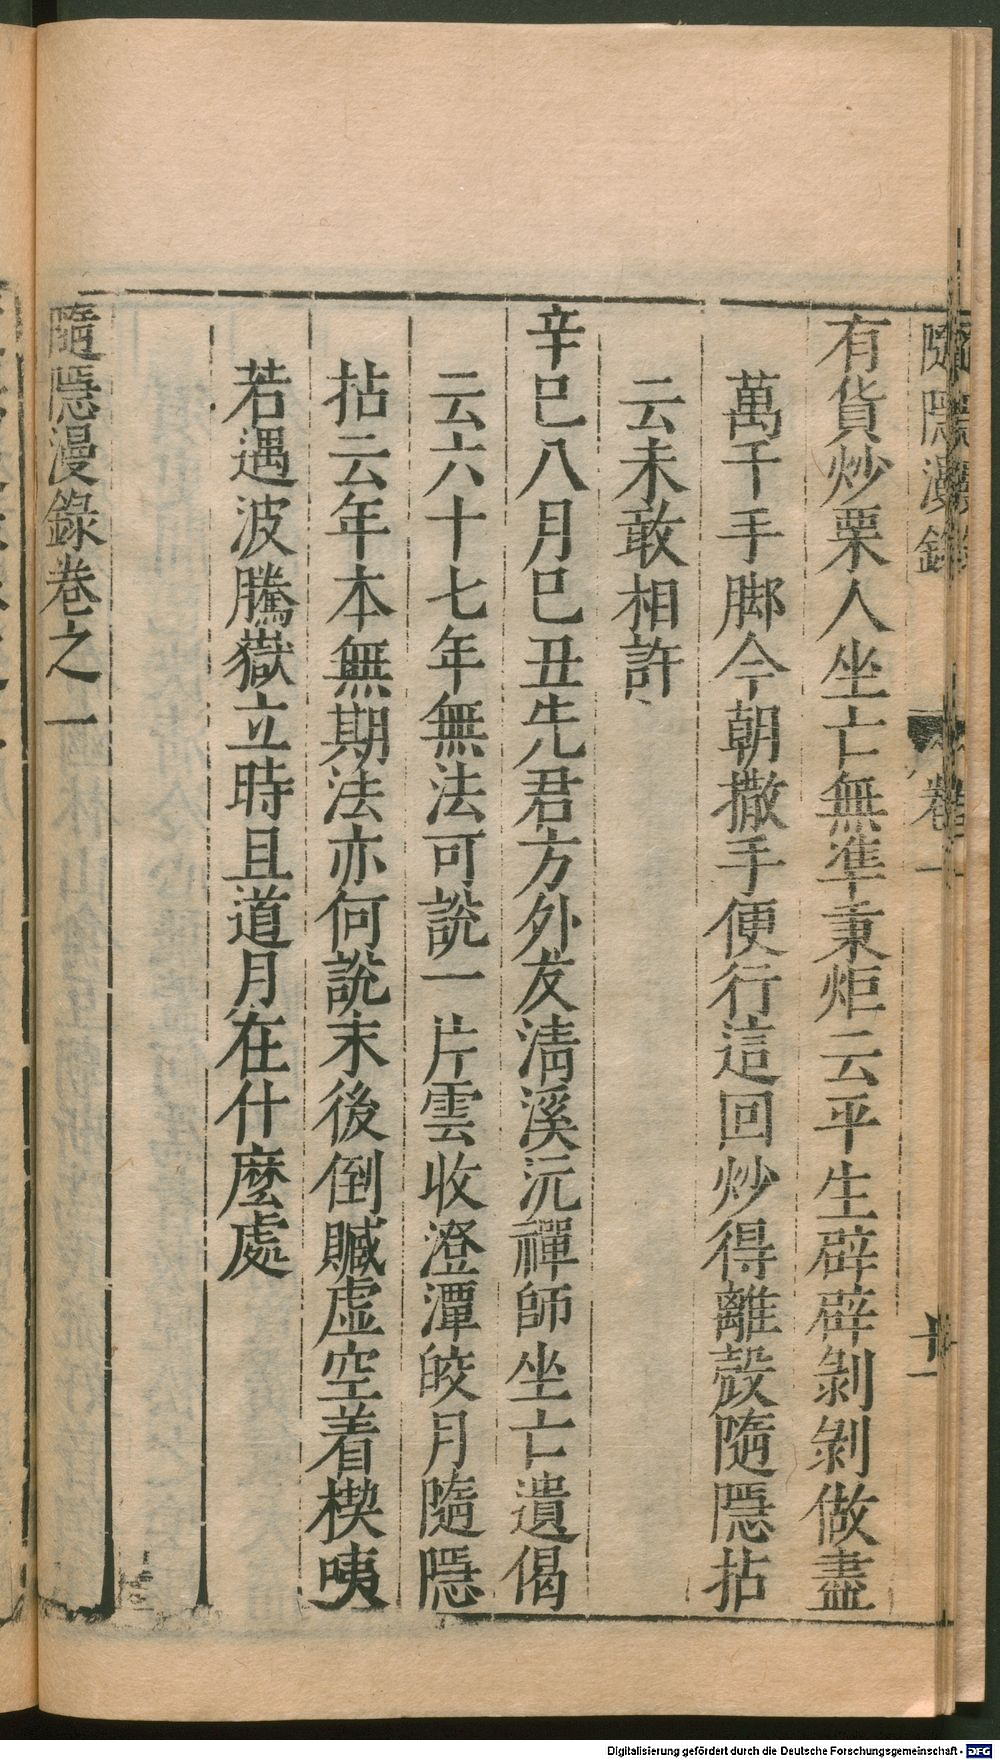 隨隱漫錄
卷一
十一
有貨炒栗人坐亡無準秉炬云平生辟辟剝剝做盡
萬千手脚今朝撒手便行這回炒得離殼隨隱拈
云未敢相許
辛巳八月巳丑先君方外友淸溪沅禪師坐亡遺偈
云六十七年無法可說一片雲收澄潭皎月隨隱
拈云年本無期法亦何說末後倒贜虛空着楔咦
若遇波騰嶽立時且道月在什麽處
隨隱漫錄卷之一
Digitalisierung gefördert durch die Deutsche Forschungsgemeinschaft - DFG